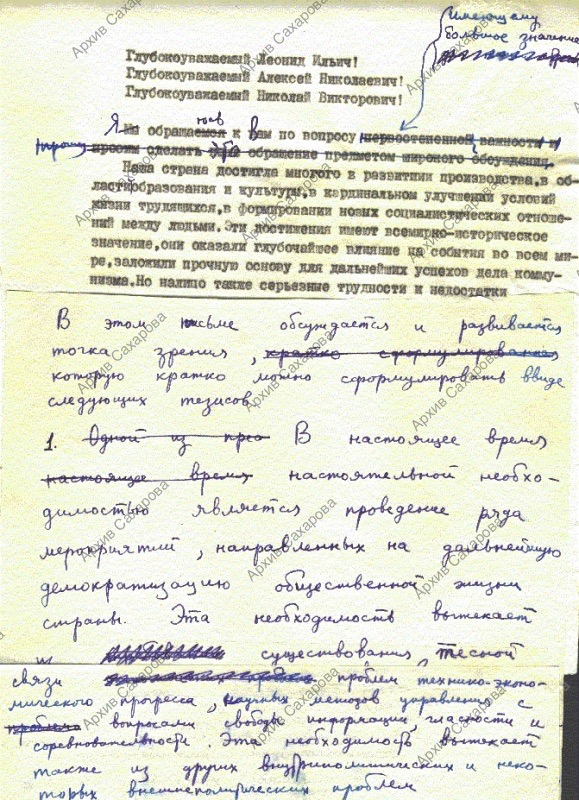 имеющему
большое значение
Глубокоуважаемый Леонид Ильич!
Глубокоуважаемый Алексей Николаевич!
Глубокоуважаемый Николай Викторович!
Я юсь В
Мы обращаемся к Вам по вопросу первостепенной важности и
просим сделать это обращение предметом широкого обсуждения.
Наша страна достигла многого в развитии производства,в об-
ластиобразования и культуры,в кардинальном улучшении условий
жизни трудящихся,в формировании новых социалистических отноше-
ний между людьми. Эти достижения имеют всемирно-историческое
значение,они оказали глубочайшее влияние на события во всем ми-
ре,заложили прочную основу для дальнейших успехов дела комму-
низма.Но налицо также серьезные трудности и недостатки
В этом письме обсуждается и развивается
точка зрения, кратко сформулированная
которую кратко можно сформулировать ввиде
следующих тезисов
1. Одной из прео В настоящее время
настоящее время настоятельной необхо-
димостью является проведение ряда
мероприятий, направленных на дальнейшую
демократизацию общественной жизни
страны. Эта необходимость вытекает
из существования тесной
связи проблем технико-эконо-
мического прогресса, научных методов управления с
проблема вопросами свободы информации, гласности и
соревновательности. Эта необходимость вытекает
также из других внутриполитических и неко-
торых внешнеполитических проблем
Архив Сахарова